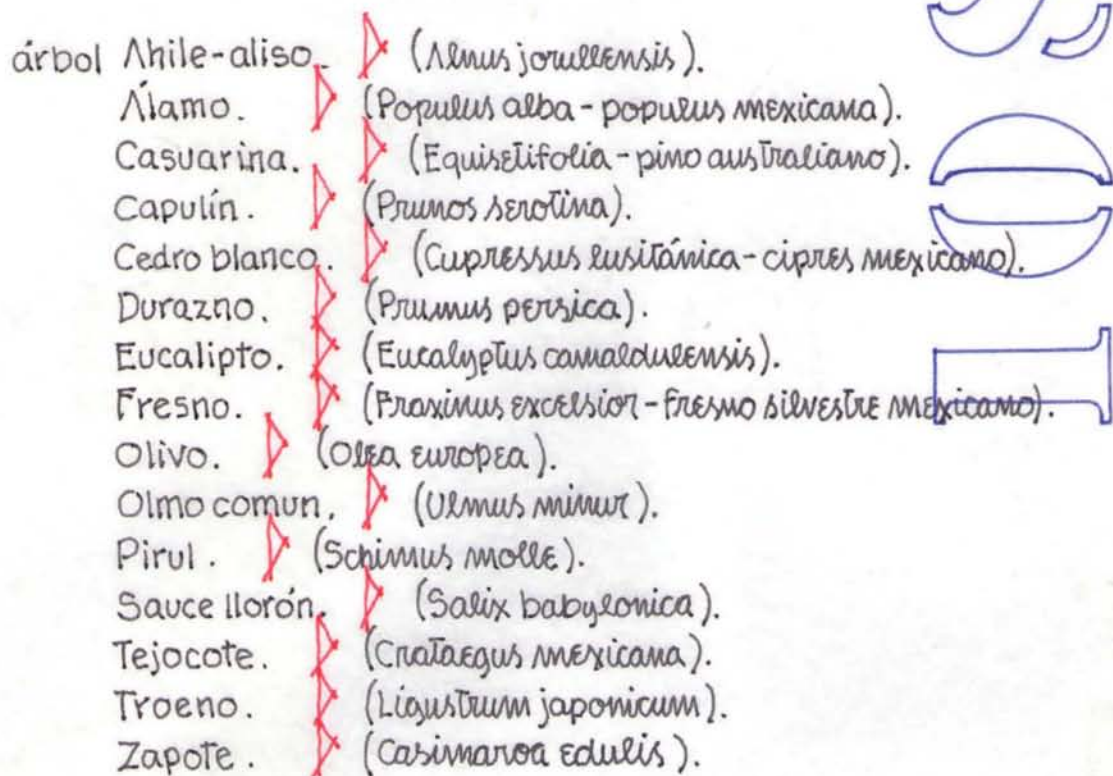 árbol Ahile-aliso. (Alnus jorullensis).
Álamo. (Populus alba - populus mexicana).
Casuarina. (Equisetifolia - pino australiano).
Capulín. (Prunos serotina).
Cedro blanco. (Cupressus lusitánica - cipres mexicano).
Durazno. (Prumus persica).
Eucalipto. (Eucalyptus camaldulensis).
Fresno. (Fraxinus excelsior - fresno silvestre mexicano).
Olivo. (Olea europea).
Olmo comun. (Ulmus minur).
Pirul. (Schimus molle).
Sauce llorón. (Salix babylonica).
Tejocote. (Crataegus mexicana).
Troeno. (Ligustrum japonicum).
Zapote. (Casimaroa edulis).